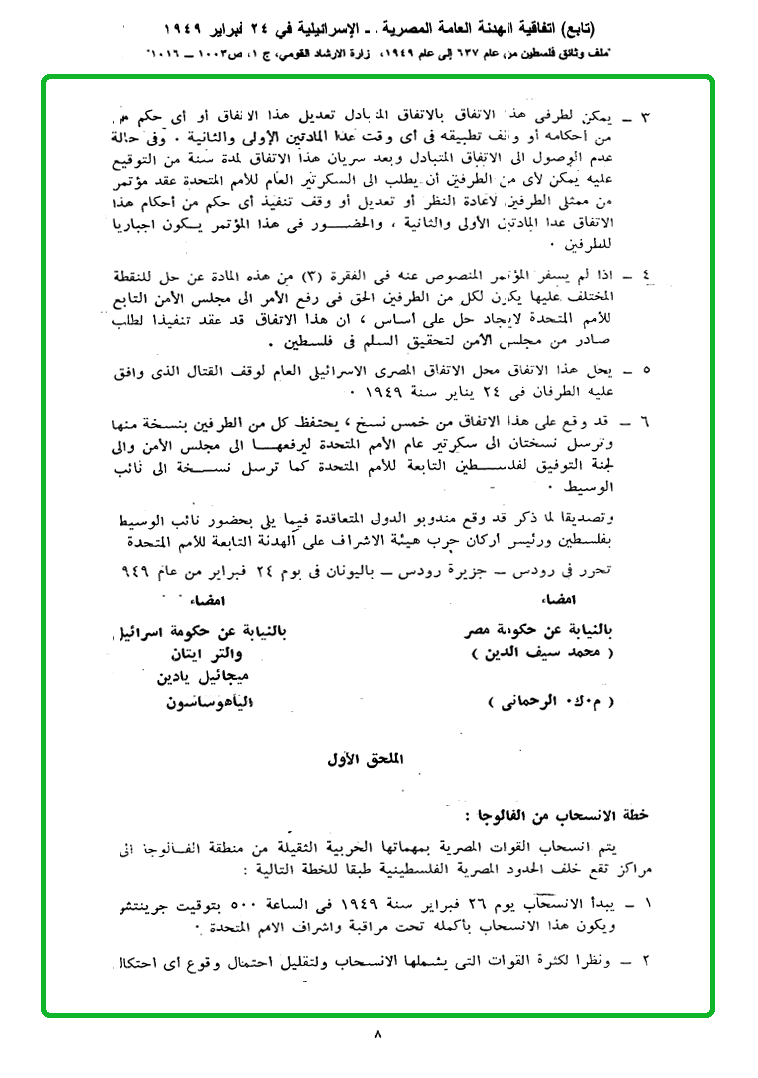 (تابع) اتفاقية الهدنة العامة المصرية - الإسرائيلية في ٢٤ فبراير ١٩٤٩
"ملف وثائق فلسطين من عام ٦٣٧ إلى عام ١٩٤٩، زارة الارشاد القومي، ج ١، ص ١٠٠٣ – ١٠١٦"
٣ – يمكن لطرفى هذا الاتفاق بالاتفاق المتبادل تعديل هذا الاتفاق أو أى حكم من
من أحكامه أو وقف تطبيقه فى أى وقت عدا المادتين الأولى والثانية . وفى حالة
عدم الوصول الى الاتفاق المتبادل وبعد سريان هذا الاتفاق لمدة سنة من التوقيع
عليه يمكن لأى من الطرفين أن يطلب الى السكرتير العام للأمم المتحدة عقد مؤتمر
من ممثلى الطرفين لاعادة النظر أو تعديل أو وقف تنفيذ أى حكم من أحكام هذا
الاتفاق عدا المادتين الأولى والثانية ، والحضور فى هذا المؤتمر يكون اجباريا
للطرفين .
٤ – اذا لم يسفر المؤتمر المنصوص عنه فى الفقرة (٣) من هذه المادة عن حل للنقطة
المختلف عليها يكون لكل من الطرفين الحق فى رفع الأمر الى مجلس الأمن التابع
للأمم المتحدة لايجاد حل على أساس ، ان هذا الاتفاق قد عقد تنفيذا لطلب
صادر من مجلس الأمن لتحقيق السلم فى فلسطين .
٥ – يحل هذا الاتفاق محل الاتفاق المصرى الاسرائيلى العام لوقف القتال الذى وافق
عليه الطرفان فى ٢٤ يناير سنة ١٩٤٩ .
٦ – قد وقع على هذا الاتفاق من خمس نسخ ، يحتفظ كل من الطرفين بنسخة منها
وترسل نسختان الى سكرتير عام الأمم المتحدة ليرفعها الى مجلس الأمن والى
لجنة التوفيق لفلسطين التابعة للأمم المتحدة كما ترسل نسخة الى نائب
الوسيط .
وتصديقا لما ذكر قد وقع مندوبو الدول المتعاقدة فيما يلى بحضور نائب الوسيط
بفلسطين ورئيس اركان حرب هيئة الاشراف على الهدنة التابعة للأمم المتحدة
تحرر فى رودس – جزيرة رودس – باليونان فى يوم ٢٤ فبراير من عام ٩٤٩
امضاء امضاء
بالنيابة عن حكومة مصر بالنيابة عن حكومة اسرائيل
( محمد سيف الدين ) والتر ايتان
ميجائيل يادين
( م٠ك٠ الرحمانى ) الياهوساسون
الملحق الأول
خطة الانسحاب من الفالوجا :
يتم انسحاب القوات المصرية بمهماتها الحربية الثقيلة من منطقة الفالوجا الى
مراكز تقع خلف الحدود المصرية الفلسطينية طبقا للخطة التالية :
١ – يبدأ الانسحاب يوم ٢٦ فبراير سنة ١٩٤٩ فى الساعة ٥٠٠ بتوقيت جرينتش
ويكون هذا الانسحاب بأكمله تحت مراقبة واشراف الامم المتحدة .
٢ – ونظرا لكثرة القوات التى يشملها الانسحاب ولتقليل احتمال وقوع أى احتكاك
٨